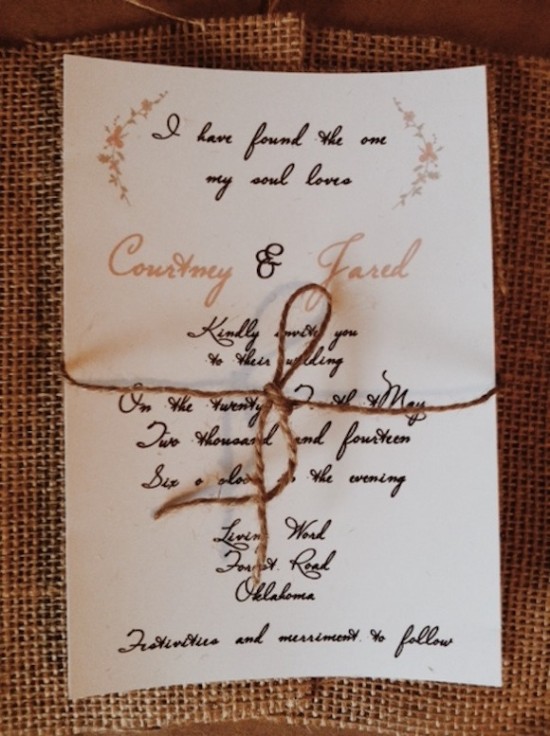 I have found the one
my soul loves
Courtney & Jared
Kindly invite you
to their wedding
On the twenty May
Two thousand and fourteen
Six o the evening
Living Word
Forest Road
Oklahoma
Festivities and merriment to follow